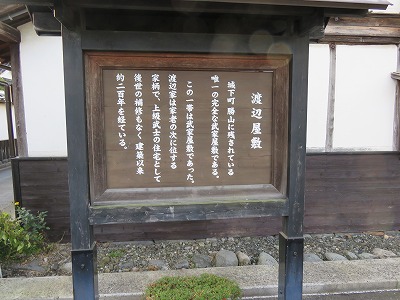 渡辺屋敷
城下町 勝山に残されている
唯一の完全な武家屋敷である。
この一帯は武家屋敷であった。
渡辺家は家老の次に位する
家柄で、上級武士の住宅として
後世の補修もなく、建築以来
約二百年を経ている。